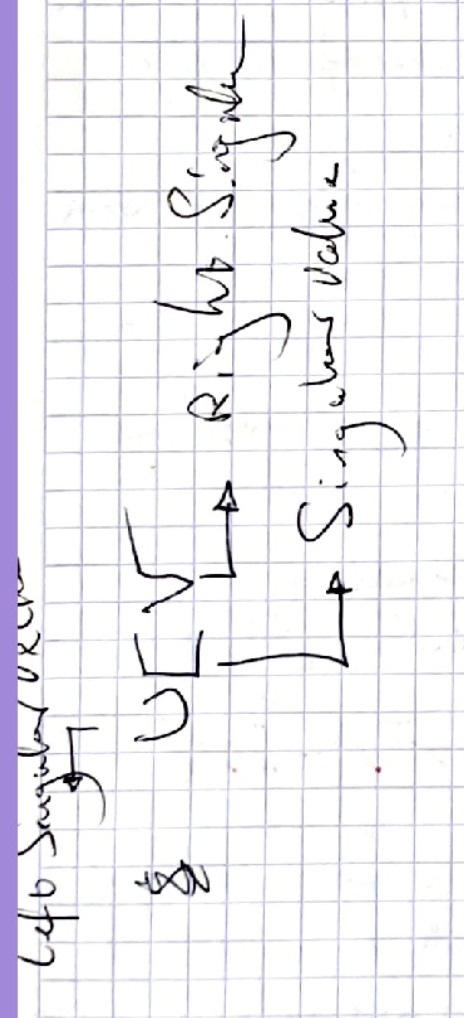 Left Singular
UEV
Right Singular
Singular Value